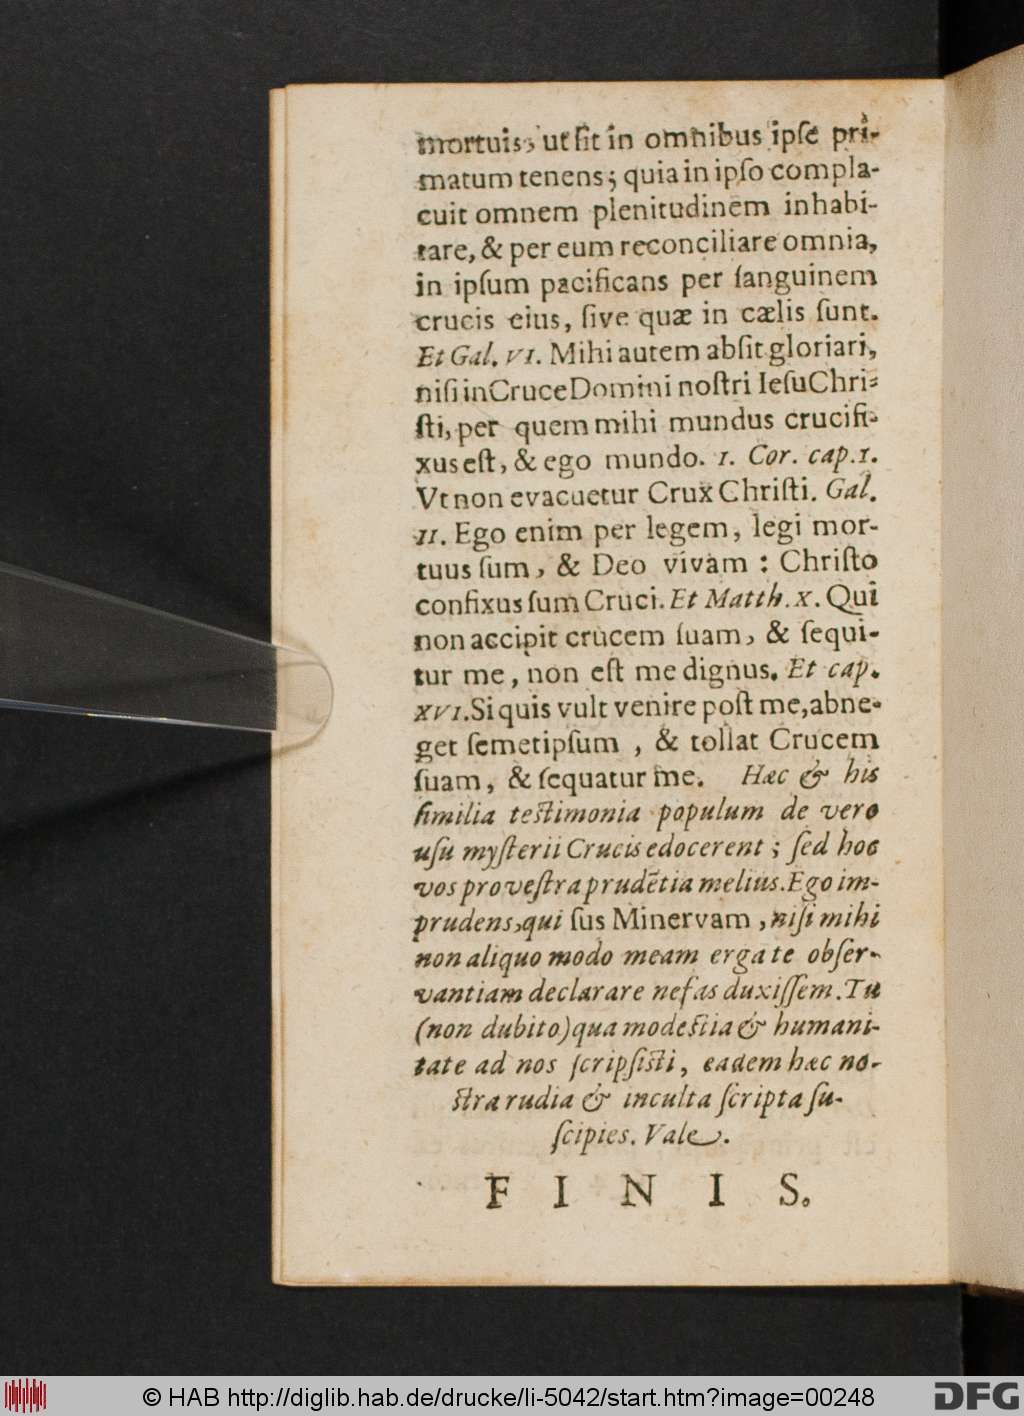 mortuis, ut ſit in omnibus ipſe pri-
matum tenens; quia in ipſo compla-
cuit omnem plenitudinem inhabi-
tare, & per eum reconciliare omnia,
in ipſum pacificans per ſanguinem
crucis eius, ſive quæ in cælis ſunt.
Et Gal. VI. Mihi autem abſit gloriari,
niſi in Cruce Domini noſtri Ieſu Chri-
ſti, per quem mihi mundus crucifi-
xus eſt, & ego mundo. 1. Cor. cap. 1.
Vt non evacuetur Crux Chriſti. Gal.
II. Ego enim per legem, legi mor-
tuus ſum, & Deo vivam: Chriſto
confixus ſum Cruci. Et Matth. X. Qui
non accipit crucem ſuam, & ſequi-
tur me, non eſt me dignus. Et cap.
XVI. Si quis vult venire poſt me, abne-
get ſemetipſum, & tollat Crucem
ſuam, & ſequatur me. Hæc & his
ſimilia teſtimonia populum de vero
uſu myſterii Crucis edocerent; ſed hoc
vos pro veſtra prudẽtia melius. Ego im-
prudens, qui ſus Minervam, niſi mihi
non aliquo modo meam erga te obſer-
vantiam declarare nefas duxiſſem. Tu
(non dubito) qua modeſtia & humani-
tate ad nos ſcripſiſti, eadem hæc no-
ſtra rudia & inculta ſcripta ſu-
ſcipies. Vale.
F I N I S.
© HAB http://diglib.hab.de/drucke/li-5042/start.htm?image=00248
DFG